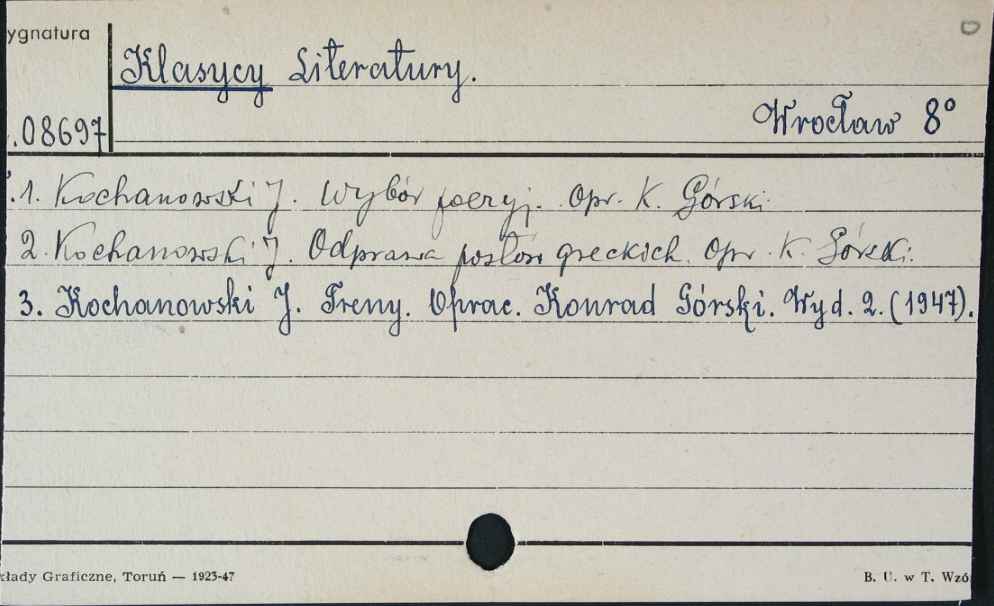 ygnatura
Klasycy Literatury.
.08697
Wrocław 8°
1. Kochanowski J. Wybór poezyj. Opr. K. Górski.
2. Kochanowski J. Odprawa posłów greckich. Opr. K. Górski.
3. Kochanowski J. Treny. Oprac. Konrad Górski. Wyd. 2. (1947).
kłady Graficzne, Toruń — 1923-47
B. U. w T. Wzó